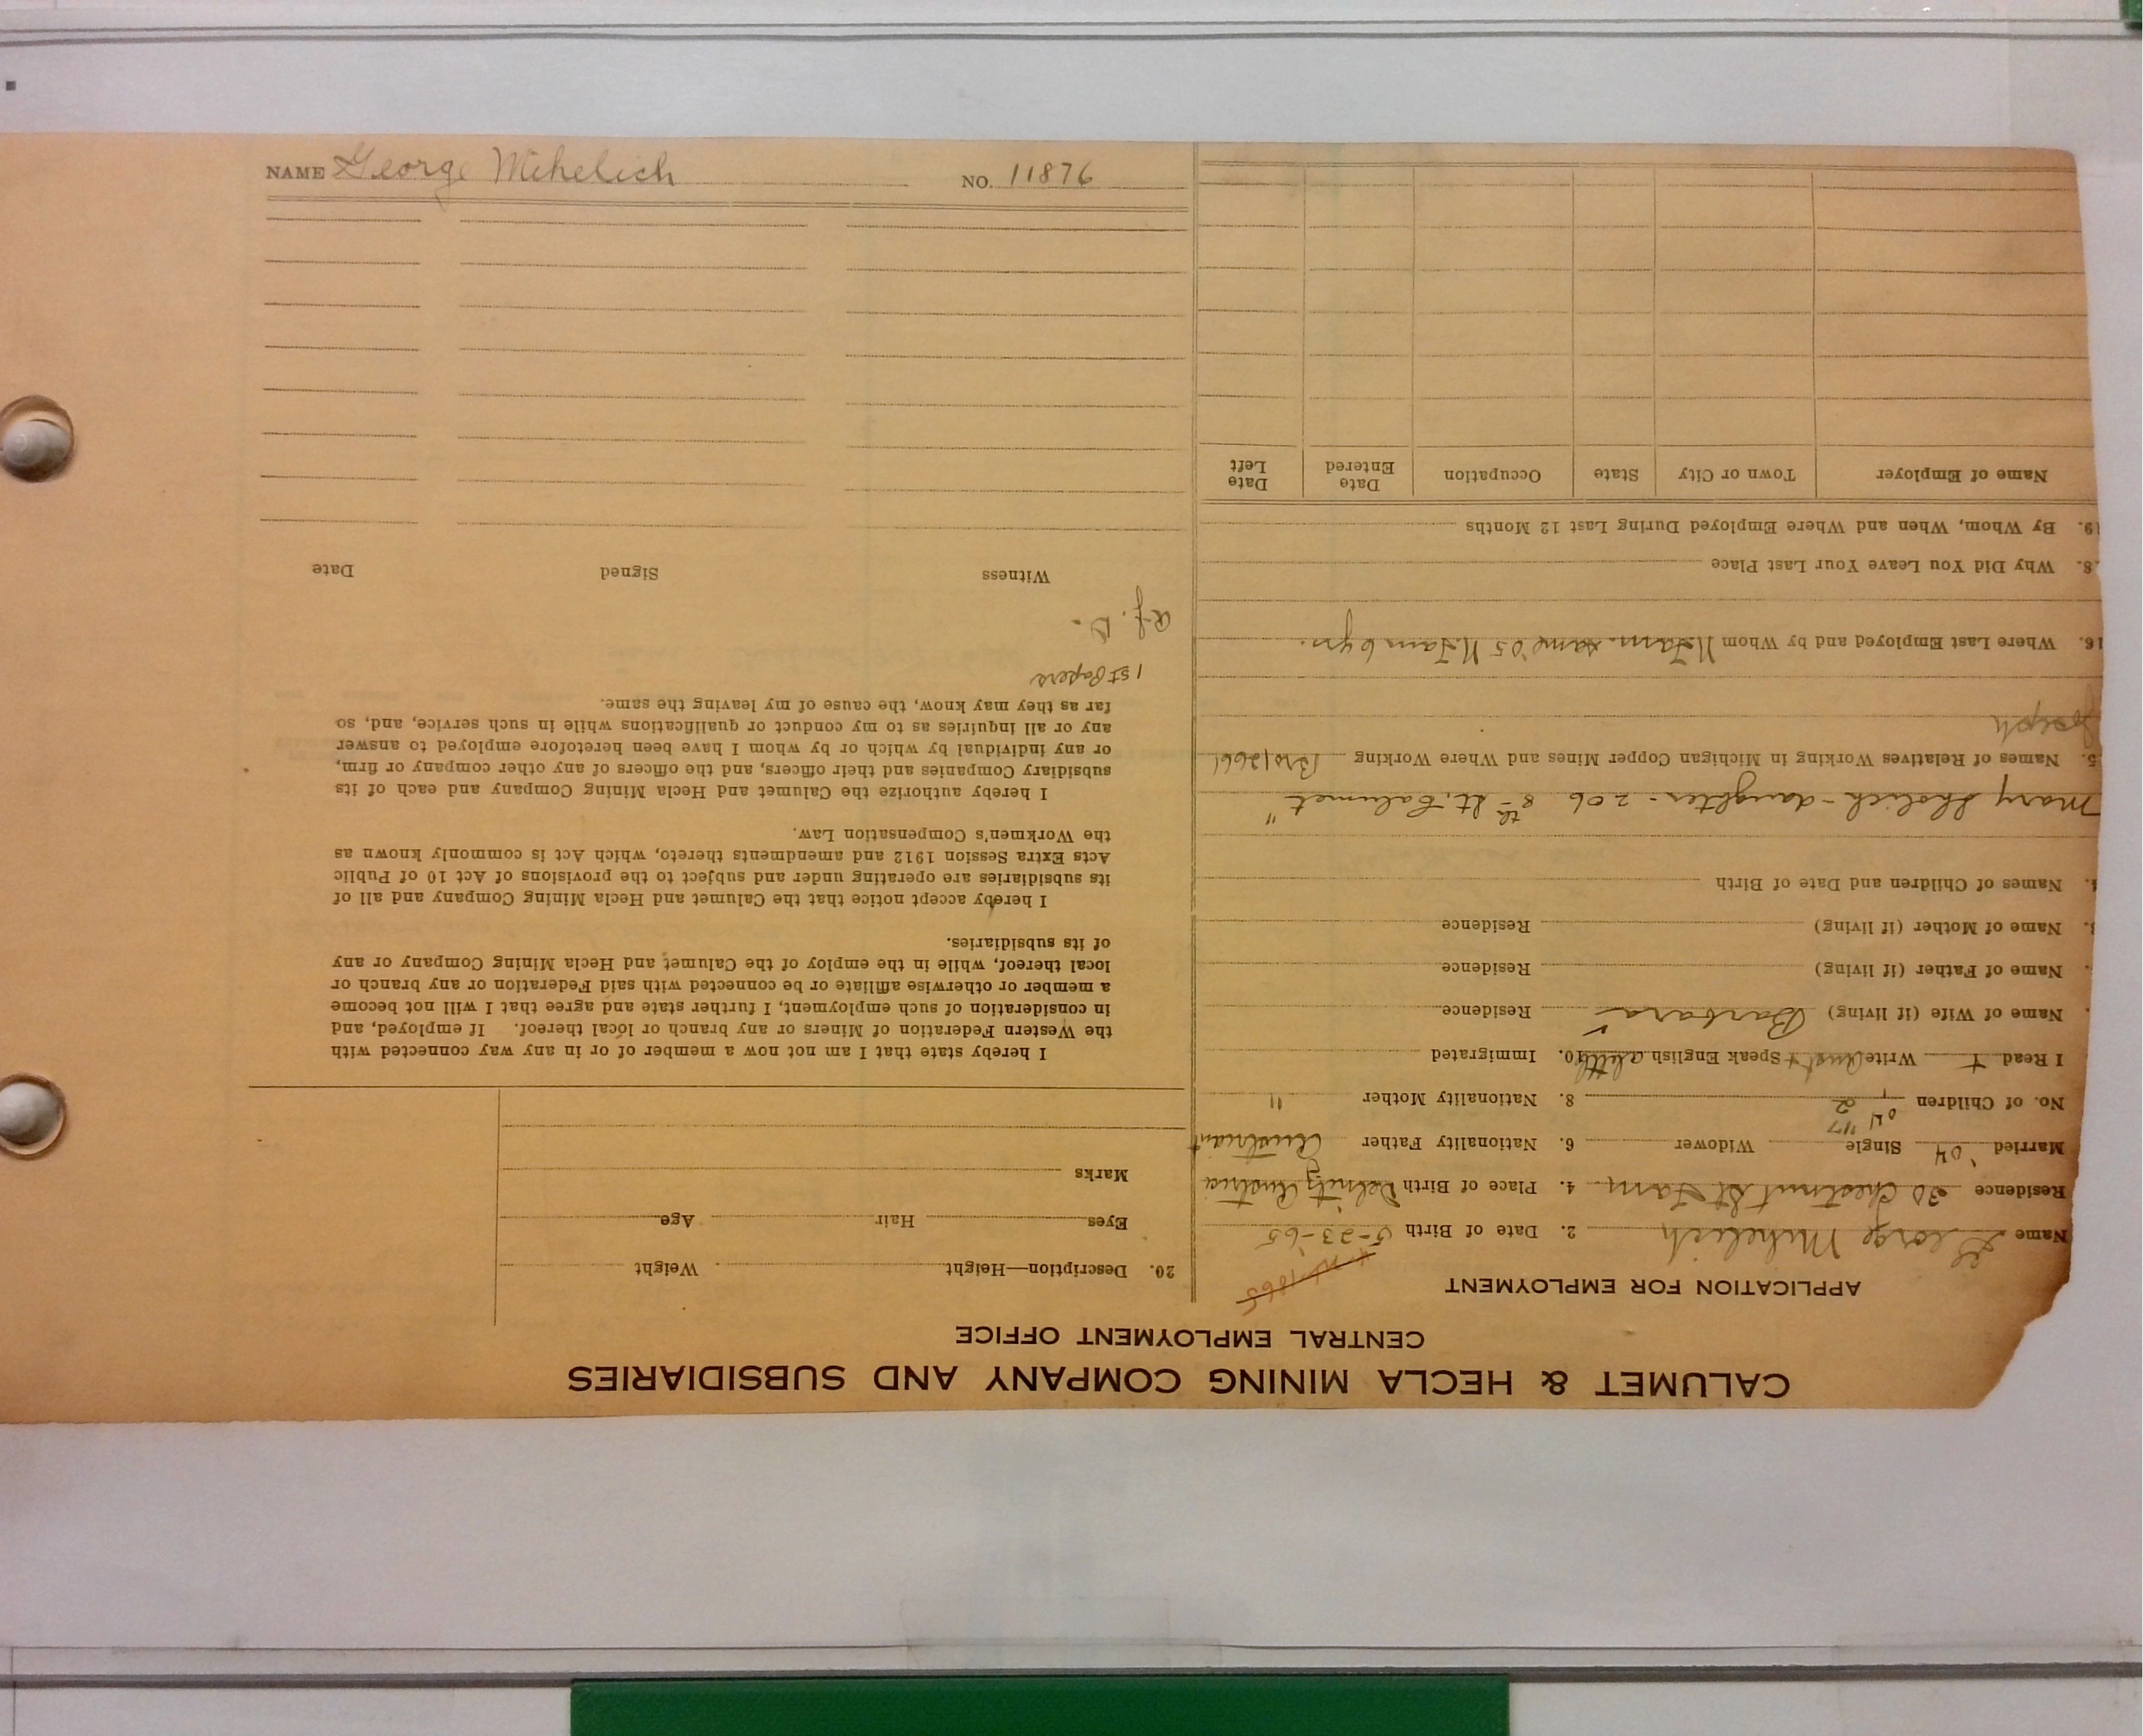 NAME George Mihelich NO. 11876
CALUMET & HECLA MINING COMPANY AND SUBSIDIARIES
CENTRAL EMPLOYMENT OFFICE
APPLICATION FOR EMPLOYMENT
1865
Name George Mihelich 2. Date of Birth 5-23-65
Residence 30 Chestnut St Tam 4. Place of Birth Austria
Married '04 Single Widower 6. Nationality Father Austrian
04 '17
No. of Children 2 8. Nationality Mother "
I Read + Write Aust + Speak English a little 10. Immigrated
Name of Wife (if living) Barbara Residence
Name of Father (if living) Residence
3. Name of Mother (if living) Residence
4. Names of Children and Date of Birth
Mary - daughter - 206 8th St. Calumet "
5. Names of Relatives Working in Michigan Copper Mines and Where Working Bro 12661
Joseph
16. Where Last Employed and by Whom N. Tam. came '05 N. Tam 6 yrs.
8. Why Did You Leave Your Last Place
19. By Whom, When and Where Employed During Last 12 Months
Name of Employer Town or City State Occupation Date Entered Date Left
20. Description—Height Weight
Eyes Hair Age
Marks
I hereby state that I am not now a member of or in any way connected with
the Western Federation of Miners or any branch or local thereof. If employed, and
in consideration of such employment, I further state and agree that I will not become
a member or otherwise affiliate or be connected with said Federation or any branch or
local thereof, while in the employ of the Calumet and Hecla Mining Company or any
of its subsidiaries.
I hereby accept notice that the Calumet and Hecla Mining Company and all of
its subsidiaries are operating under and subject to the provisions of Act 10 of Public
Acts Extra Session 1912 and amendments thereto, which Act is commonly known as
the Workmen's Compensation Law.
I hereby authorize the Calumet and Hecla Mining Company and each of its
subsidiary Companies and their officers, and the officers of any other company or firm,
or any individual by which or by whom I have been heretofore employed to answer
any or all inquiries as to my conduct or qualifications while in such service, and, so
far as they may know, the cause of my leaving the same.
1st Papers
Witness Signed Date